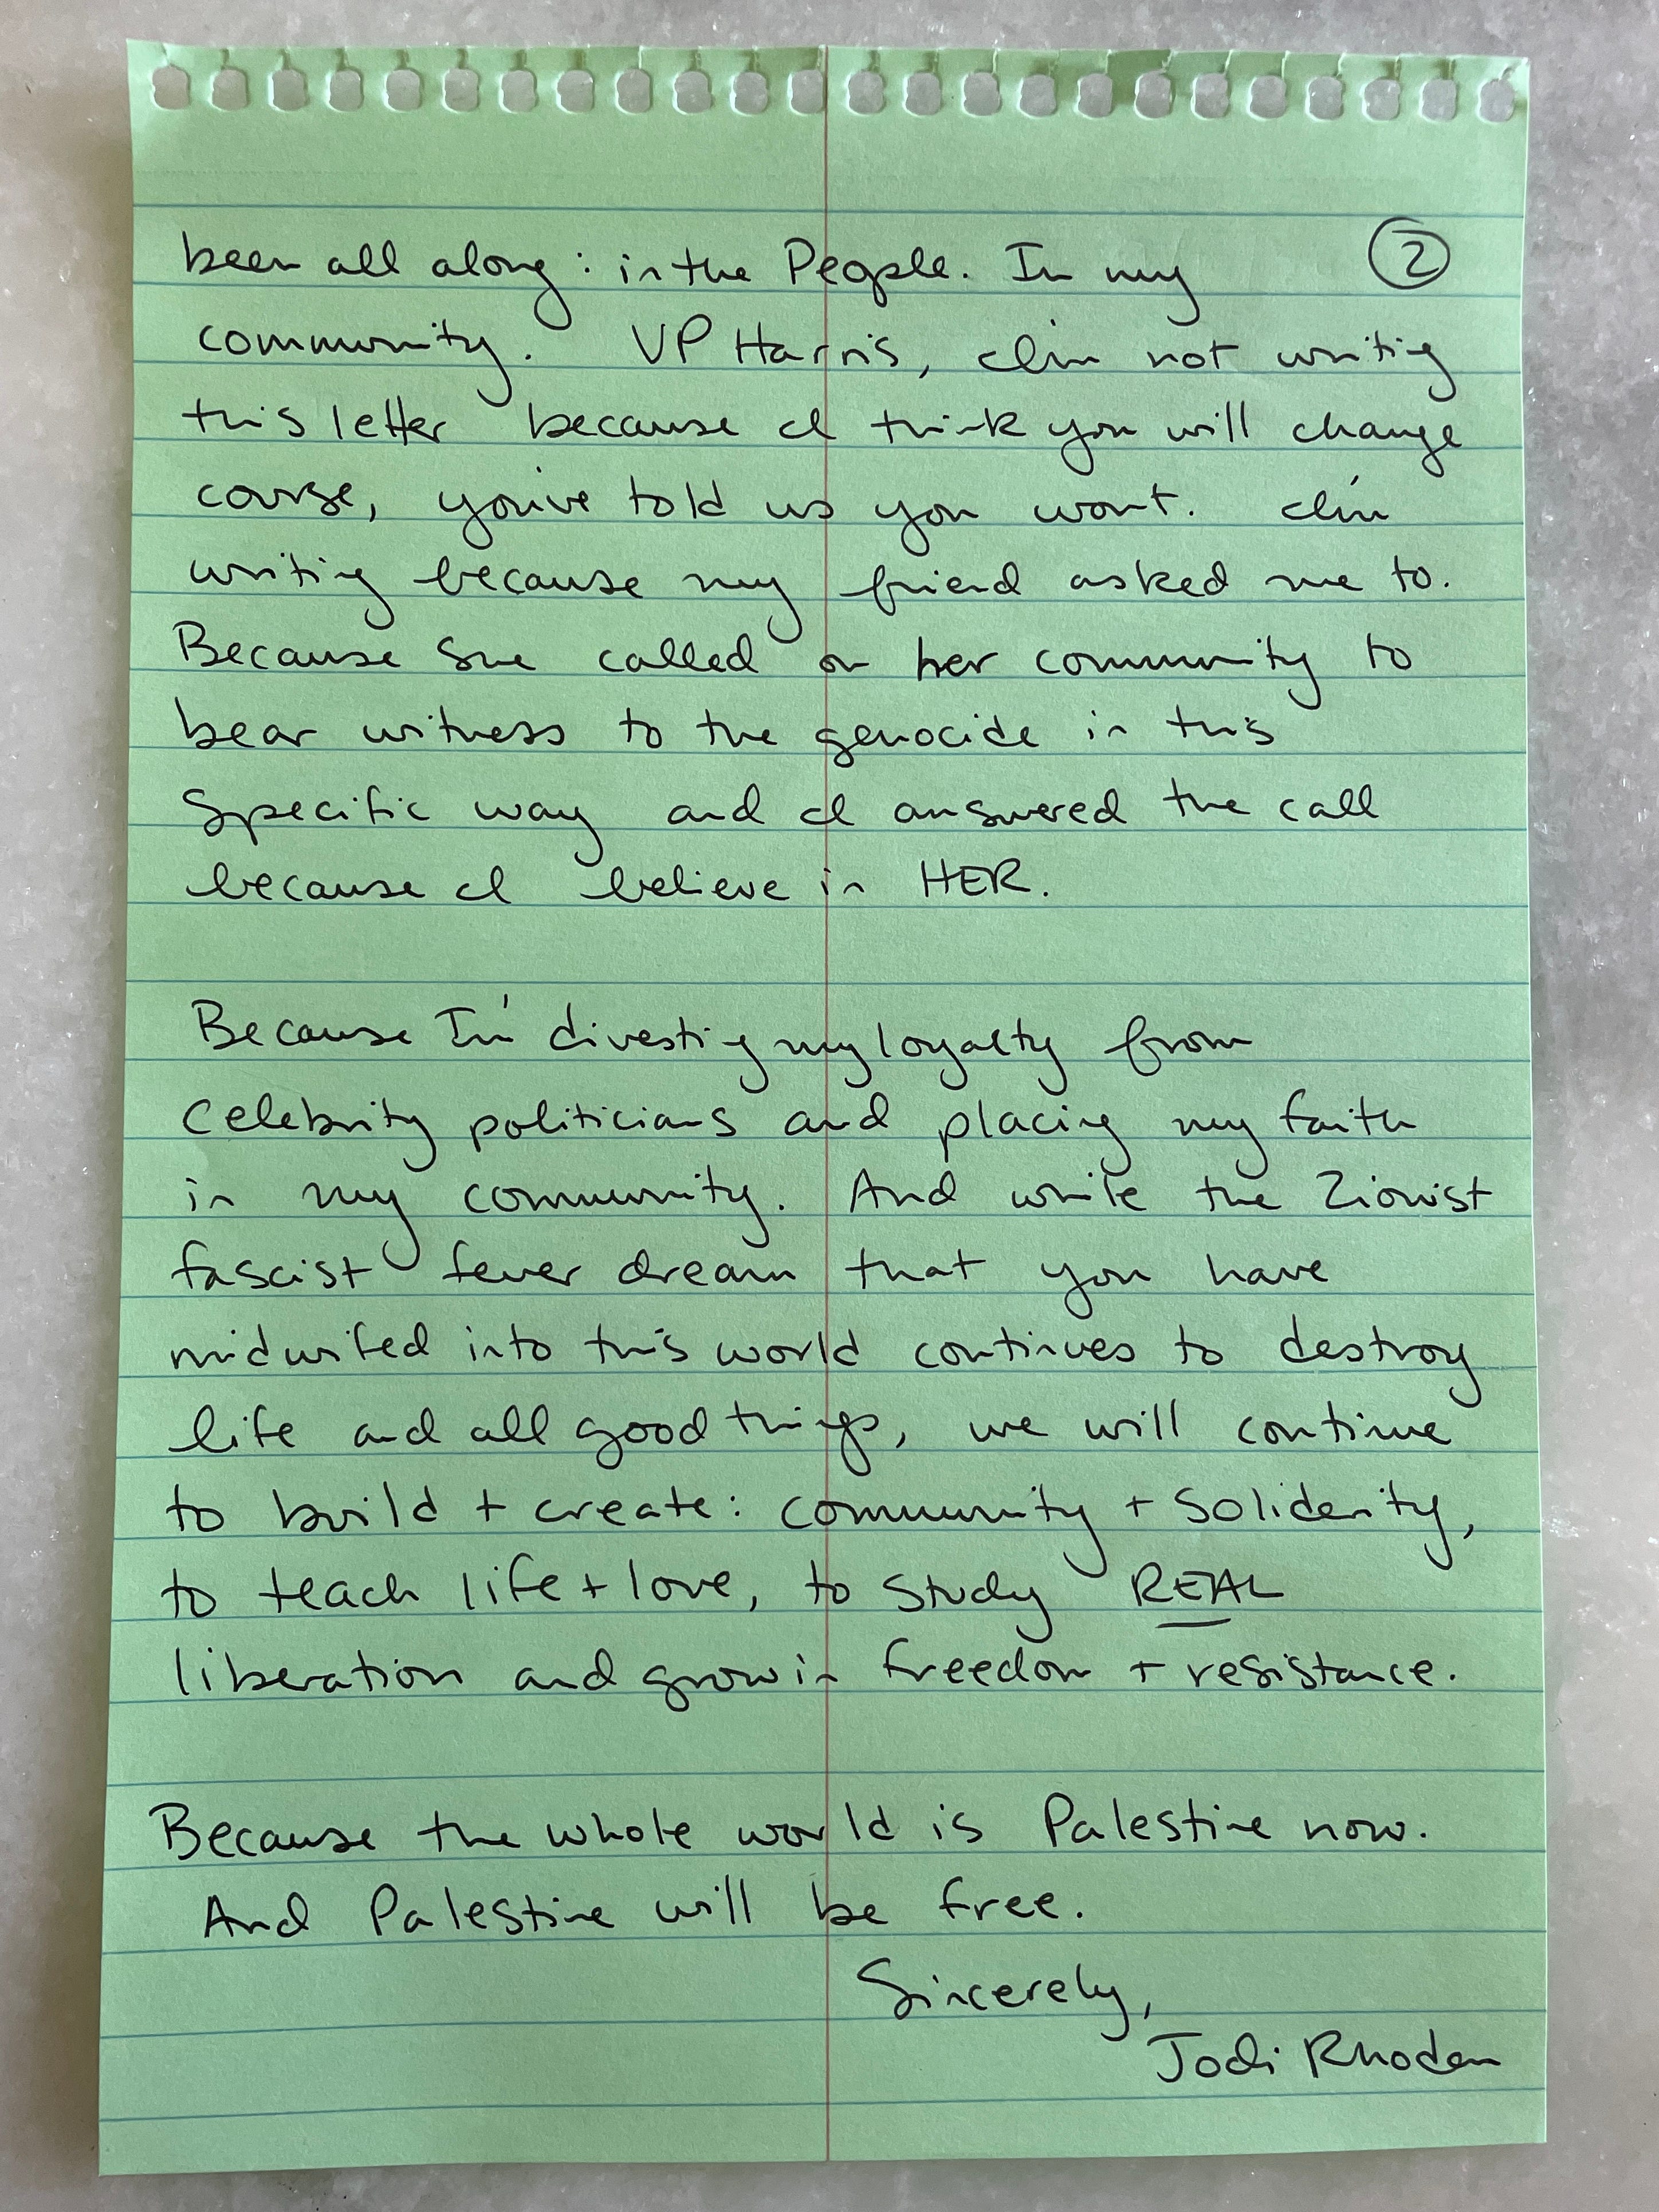 been all along: in the People. In my ②
community. VP Harris, I'm not writing
this letter because I think you will change
course, you've told us you won't. I'm
writing because my friend asked me to.
Because she called on her community to
bear witness to the genocide in this
specific way and I answered the call
because I believe in HER.
Because I'm divesting my loyalty from
celebrity politicians and placing my faith
in my community. And while the Zionist
fascist fever dream that you have
midwifed into this world continues to destroy
life and all good things, we will continue
to build + create: community + solidarity,
to teach life + love, to study REAL
liberation and grow in freedom + resistance.
Because the whole world is Palestine now.
And Palestine will be free.
Sincerely,
Jodi Rhoden